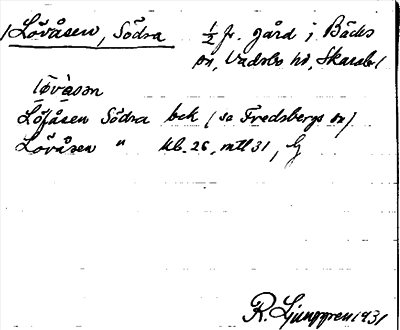 Lövåsen, Södra ½ fr. gård i Bäcks
sn, Vadsbo hd, Skarab. l
löväsen
Löfåsen Södra bek (se Fredsbergs sn)
Lövåsen " kb. 26, mtl 31, G
R. Ljunggren 1931